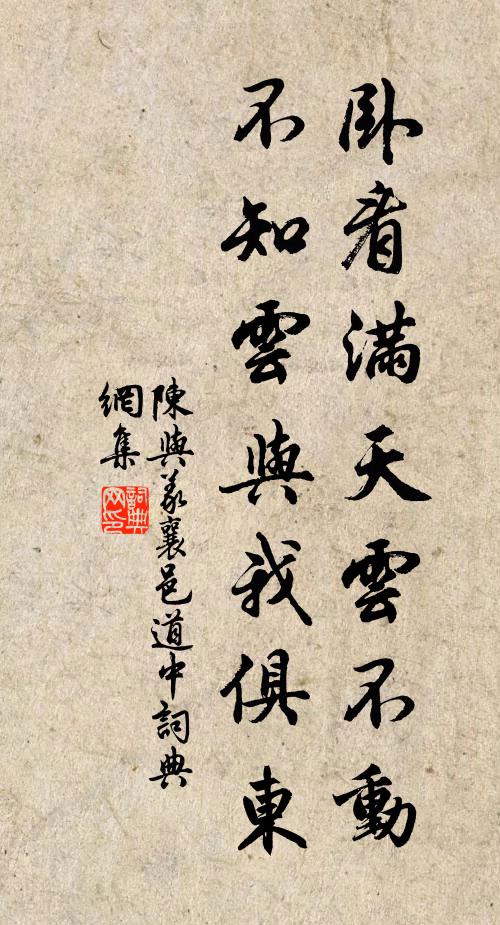 臥看滿天雲不動
不知雲與我俱東
陳與義襄邑道中詞典
網集
詞典
网印